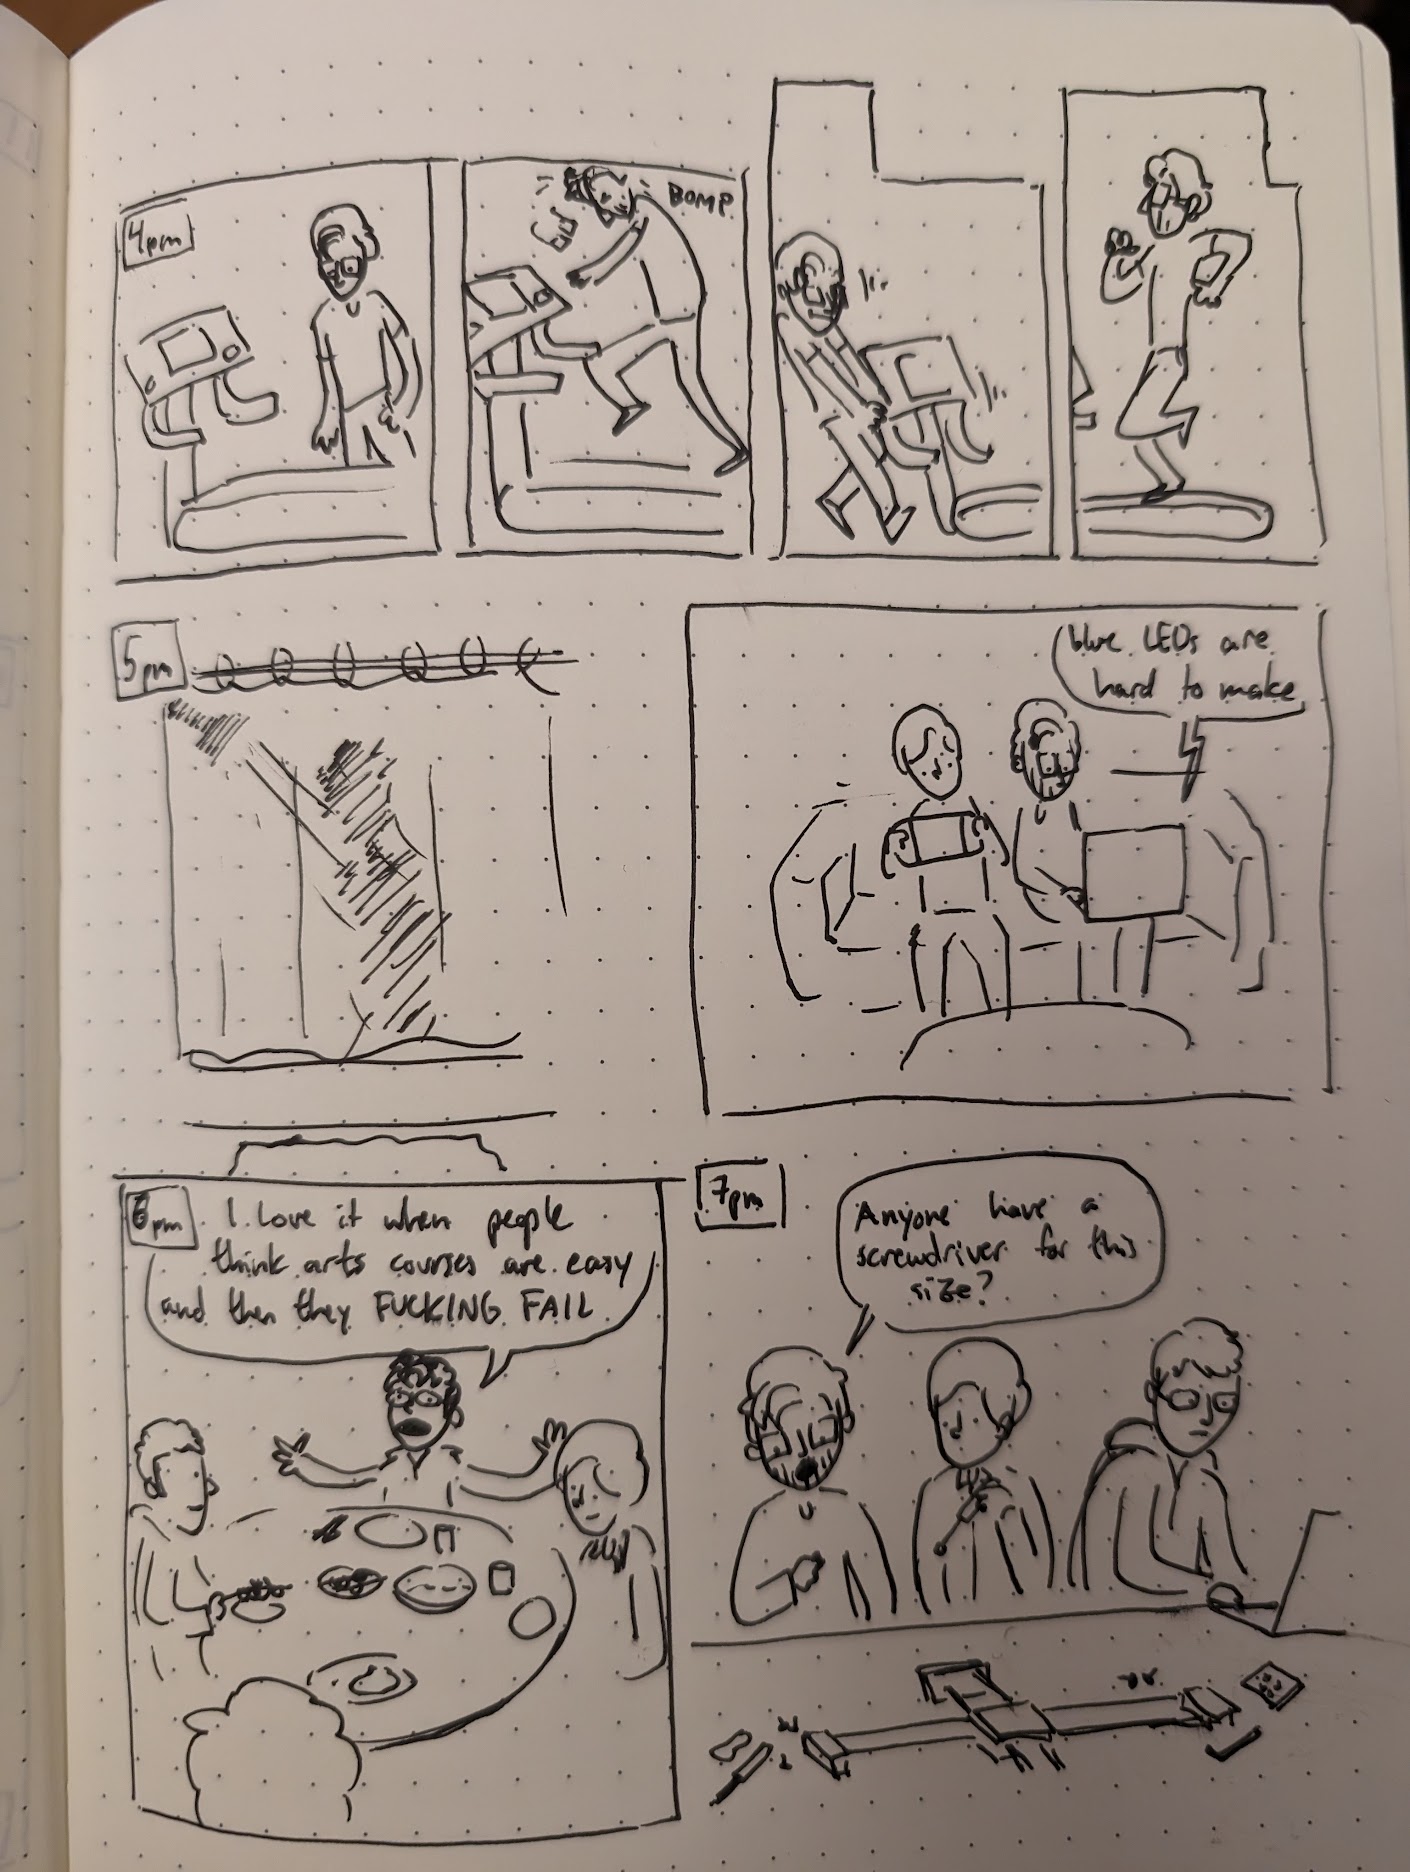 4pm
BOMP
5pm
blue LEDs are
hard to make
6pm
I love it when people
think arts courses are easy
and then they FUCKING FAIL
7pm
Anyone have a
screwdriver for this
size?